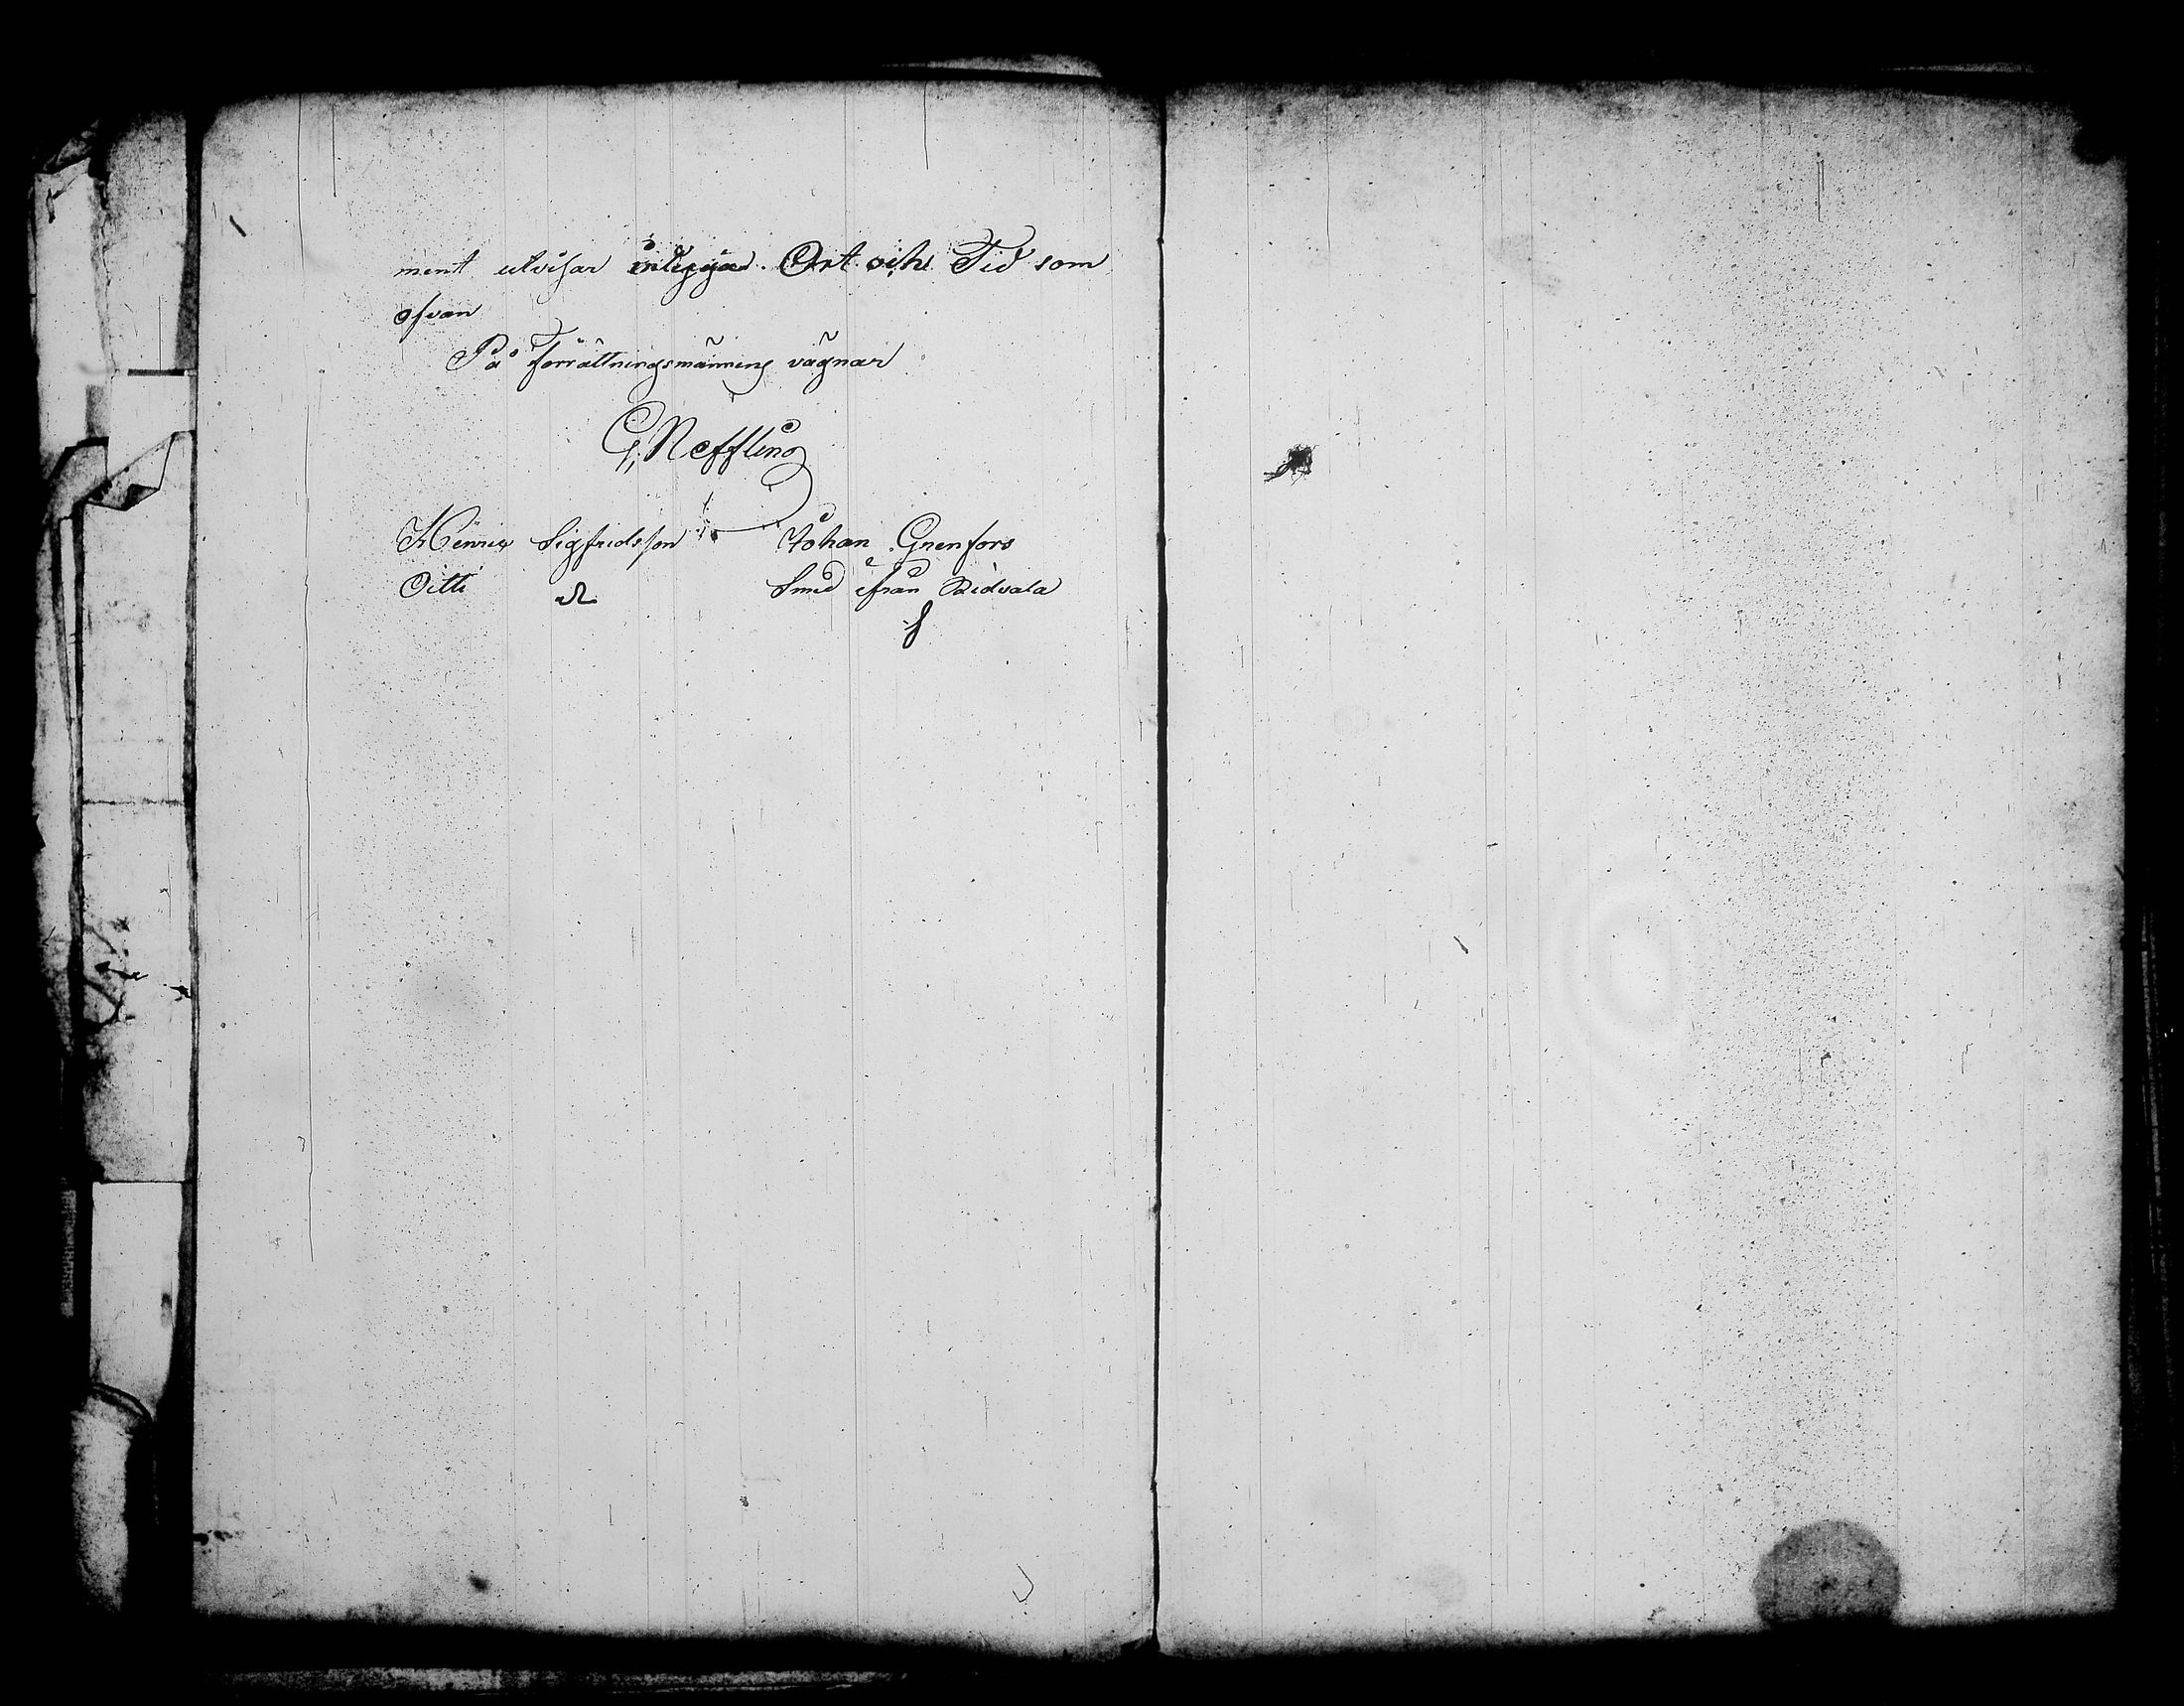 ment utvisar inlägga. Ort och Tid som
ofvan
På förrättningsmännens vägnar
G. Neffling
Henrix Sigfridsson Johan Grenfors
Oitti Smed ifrån Ridvala